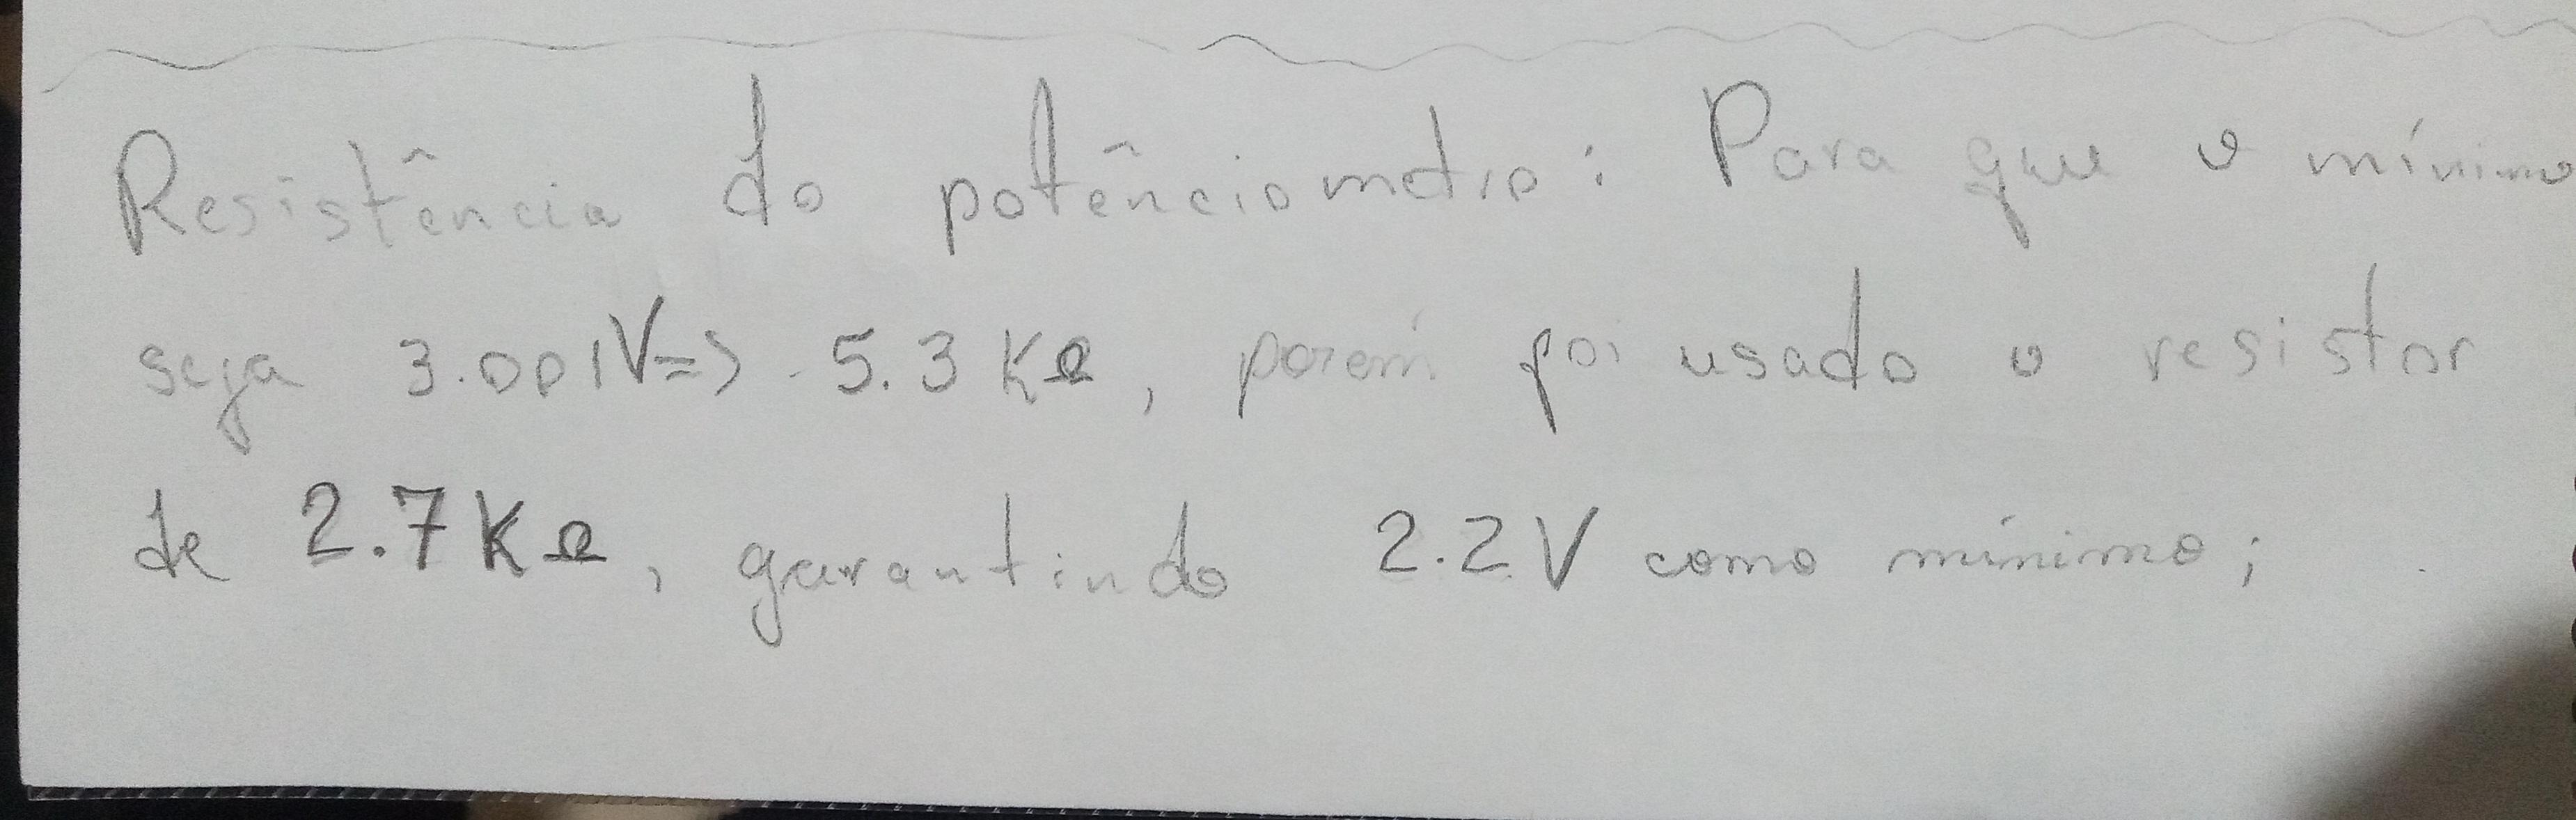 Resistência do potênciometro: Para que o mínimo
seja 3.001V=> 5.3 KΩ, porém foi usado o resistor
de 2.7KΩ, garantindo 2.2V como mínimo;